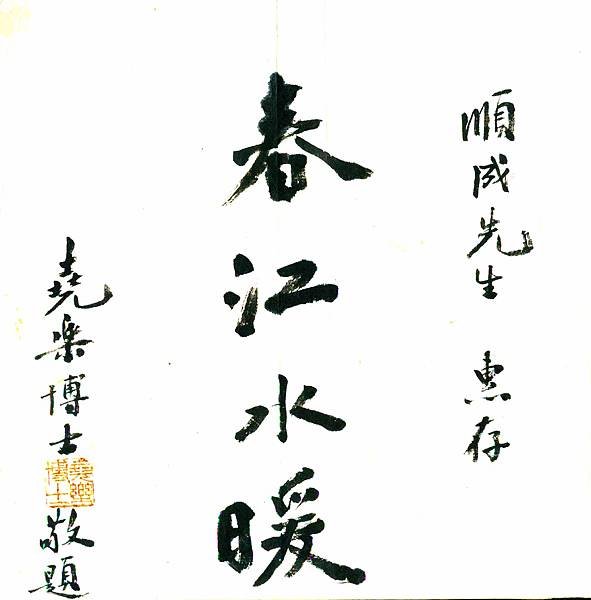 順成先生 惠存
春江水暖
堯樂博士敬題
堯樂博士